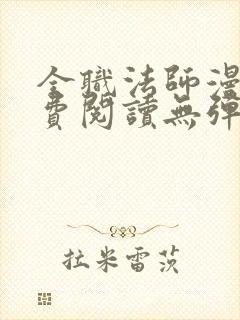 全職法師漫
費閱讀無彈
拉米雷茨